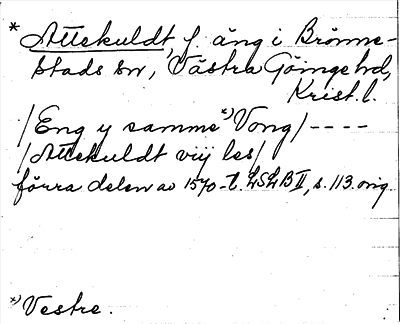 * Attekuldt, f. äng i Brönne-
stads sn, Västra Göinge hd,
Krist. l.
/Eng y samme *) Vong/ ----
/Attekuldt viij les/
förra delen av 1570-t. LSLB II, s. 113. orig.
*) Vestre.